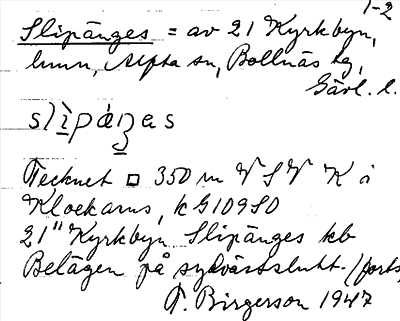 1-2
Slipänges = av 21 Kyrkbyn,
hmn, Alfta sn, Bollnäs tg,
Gävl. l.
slìpáŋes
Tecknet □ 350 m VSV K i
Klockarns, k G109SO
21" Kyrkbyn Slipänges kb
Belägen på sydvästslutt. /forts
T. Birgerson 1947